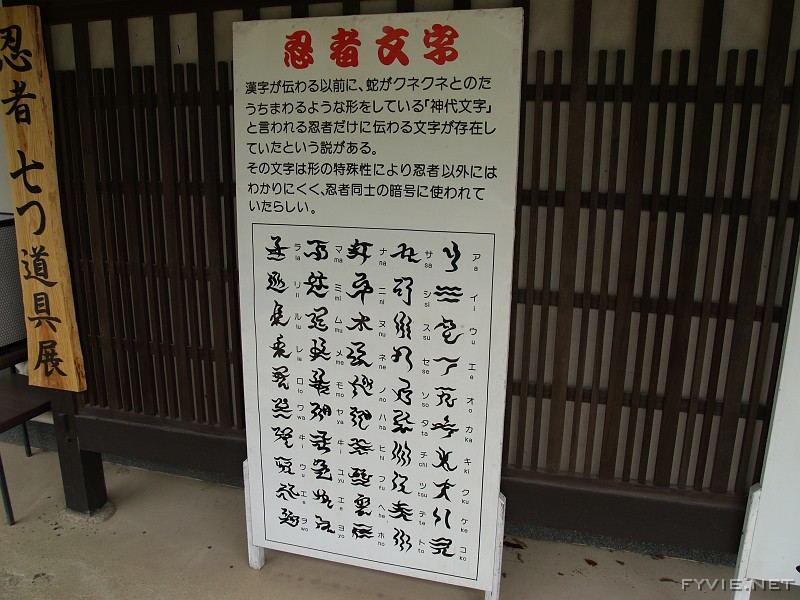 忍者 七つ道具展
忍者文字
漢字が伝わる以前に、蛇がクネクネとのた
うちまわるような形をしている「神代文字」
と言われる忍者だけに伝わる文字が存在し
ていたという説がある。
その文字は形の特殊性により忍者以外には
わかりにくく、忍者同士の暗号に使われて
いたらしい。
ア a
イ i
ウ u
エ e
オ o
カ ka
キ ki
ク ku
ケ ke
コ ko
サ sa
シ si
ス su
セ se
ソ so
タ ta
チ chi
ツ tsu
テ te
ト to
ナ na
ニ ni
ヌ nu
ネ ne
ノ no
ハ ha
ヒ hi
フ fu
ヘ he
ホ
マ ma
ミ mi
ム mu
メ me
モ mo
ヤ ya
キ
ユ yu
エ e
ヨ yo
ラ
リ
ル
レ
ロ
ワ wa
ウ u
エ
ヲ wo
FYVIE.NET